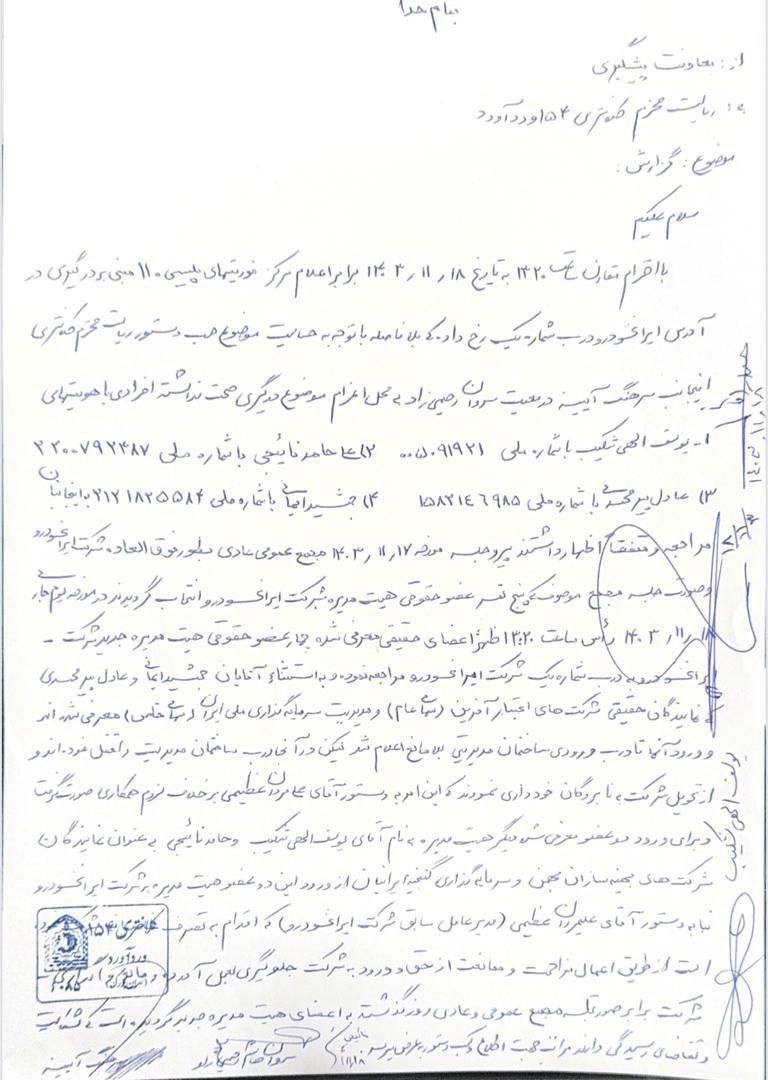 بنام خدا
از: معاونت پیشگیری
به: ریاست محترم کلانتری ۱۵۴ وردآورد
موضوع: گزارش:
سلام علیکم
با احترام مقارن ساعت ۱۳۲۰ به تاریخ ۱۸، ۱۱، ۱۴۰۳ برابر اعلام مرکز فوریتهای پلیسی ۱۱۰ مبنی بر درگیری در
آدرس ایرانخودرو درب شماره یک رخ داده که بلافاصله با توجه به حساسیت موضوع حسب دستور ریاست محترم کلانتری
اینجانب سرهنگ آیینه در معیت ستوان رحیمی راد به محل اعزام موضوع درگیری صحت نداشته افرادی با هویتهای
۱- یوسف الهی شکیب با شماره ملی ۵۰۹۱۹۳۱ ۰۰ ۲) حامد نائیجی با شماره ملی ۲۲۰۰۷۹۲۴۸۷
۳) عادل پیرمحمدی با شماره ملی ۱۵۸۲۱۴۶۹۸۵ ۴) جمشید ایمانی با شماره ملی ۲۱۲۱۸۲۵۵۸۴ به اینجانبان
مراجعه و متفقاً اظهار داشتند پیرو جلسه مورخه ۱۷، ۱۱، ۱۴۰۳ مجمع عمومی عادی بطور فوق العاده شرکت ایرانخودرو
و صورت جلسه مجمع موصوف که پنج نفر عضو حقوقی هیت مدیره شرکت ایرانخودرو انتخاب گردیدند در مورخه یوم جاری
۱۸، ۱۱، ۱۴۰۳ رأس ساعت ۱۳:۲۰ ظهر اعضای حقیقی معرفی شده چهار عضو حقوقی هیت مدیره جدید شرکت -
ایرانخودرو به درب شماره یک شرکت ایرانخودرو مراجعه نموده و به استثناء آقایان جمشید ایمانی و عادل پیرمحمدی
که نمایندگان حقیقی شرکت های اعتبار آفرین (سهامی عام) و مدیریت سرمایه گذاری ملی ایران (سهامی خاص) معرفی شده اند
و ورود آنها تا درب ورودی ساختمان مدیریتی بلامانع اعلام شد لیکن در آنجا درب ساختمان مدیریت را قفل نموده اند و
از تحویل شرکت به نامبردگان خودداری نمودند که این امر به دستور آقای علیمردان عظیمی بر خلاف لزوم همکاری صورت گرفت
و برای ورود دو عضو معرفی شده دیگر هیت مدیره به نام آقای یوسف الهی شکیب و حامد نائیجی به عنوان نمایندگان
شرکت های بهینه سازان بهمن و سرمایه گذاری گنجینه ایرانیان از ورود این دو عضو هیت مدیره به شرکت ایرانخودرو
بنا به دستور آقای علیمردان عظیمی (مدیر عامل سابق شرکت ایرانخودرو) که اقدام به تصرف
است از طریق اعمال مزاحمت و ممانعت از حق و ورود به شرکت جلوگیری بعمل آمده
شرکت برابر صورتجلسه مجمع عمومی و عادی روز گذشته به اعضای هیت مدیره جدید گردیده است که شکایت
و تقاضای رسیدگی دارند مراتب جهت اطلاع و کسب دستور بعرض میرسد
کلانتری ۱۵۴
وردآورد
یوسف الهی شکیب